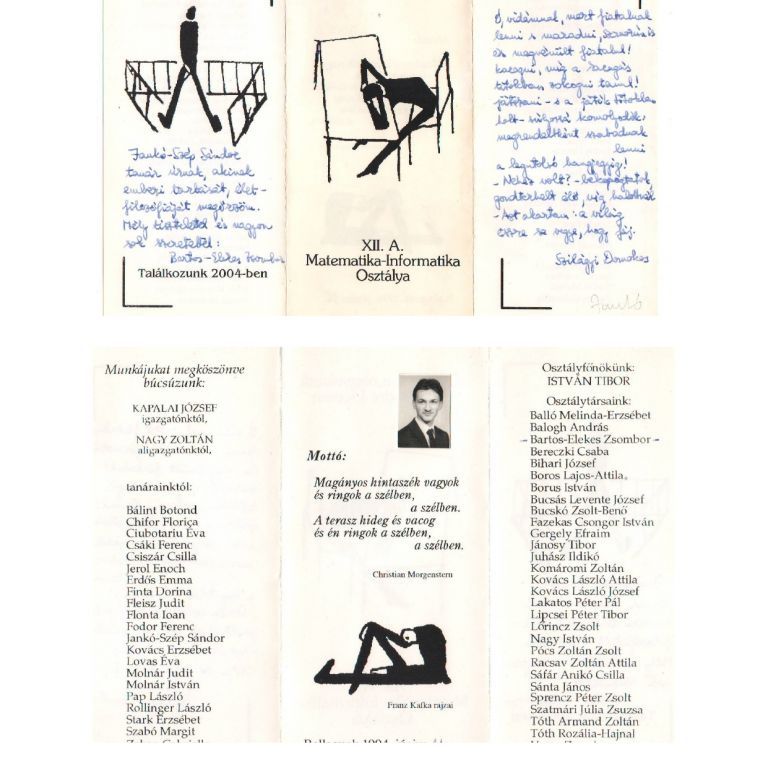 Jankó-Szép Sándor
tanár úrnak, akinek
emberi tartását, élet-
filozófiáját megőrzöm.
Mély tisztelettel és nagyon
sok szeretettel:
Bartos-Elekes Zsombor
Találkozunk 2004-ben
XII. A.
Matematika-Informatika
Osztálya
Ó, vidámnak, mert fiatalnak
lenni s maradni, szomorú is
és megvénült fiatalul!
kacagni, míg a kacagás
titokban zokogni tanul!
játszani - s a játék
komolyodik:
megrendeltként szabadnak
lenni
a legutolsó hangjegyig!
- Nehéz volt? -
gondterhelt élt, víg halottnál
- Azt akartam: a világ
össze se vegye, hogy fáj.
Szilágyi Domokos
Jankó
Munkájukat megköszönve
búcsúzunk:
KAPALAI JÓZSEF
igazgatónktól,
NAGY ZOLTÁN
aligazgatónktól,
tanárainktól:
Bálint Botond
Chifor Floriça
Ciubotariu Éva
Csáki Ferenc
Csiszár Csilla
Jerol Enoch
Erdős Emma
Finta Dorina
Fleisz Judit
Flonta Ioan
Fodor Ferenc
Jankó-Szép Sándor
Kovács Erzsébet
Lovas Éva
Molnár Judit
Molnár István
Pap László
Rollinger László
Stark Erzsébet
Szabó Margit
Mottó:
Magányos hintaszék vagyok
és ringok a szélben,
a szélben.
A terasz hideg és vacog
és én ringok a szélben,
a szélben.
Christian Morgenstern
Franz Kafka rajzai
Osztályfőnökünk:
ISTVÁN TIBOR
Osztálytársaink:
Balló Melinda-Erzsébet
Balogh András
- Bartos-Elekes Zsombor -
Bereczki Csaba
Bihari József
Boros Lajos-Attila
Borus István
Bucsás Levente József
Bucskó Zsolt-Benő
Fazekas Csongor István
Gergely Efraim
Jánosy Tibor
Juhász Ildikó
Komáromi Zoltán
Kovács László Attila
Kovács László József
Lakatos Péter Pál
Lipcsei Péter Tibor
Lőrincz Zsolt
Nagy István
Pócs Zoltán Zsolt
Racsav Zoltán Attila
Sáfár Anikó Csilla
Sánta János
Sprencz Péter Zsolt
Szatmári Júlia Zsuzsa
Tóth Armand Zoltán
Tóth Rozália-Hajnal